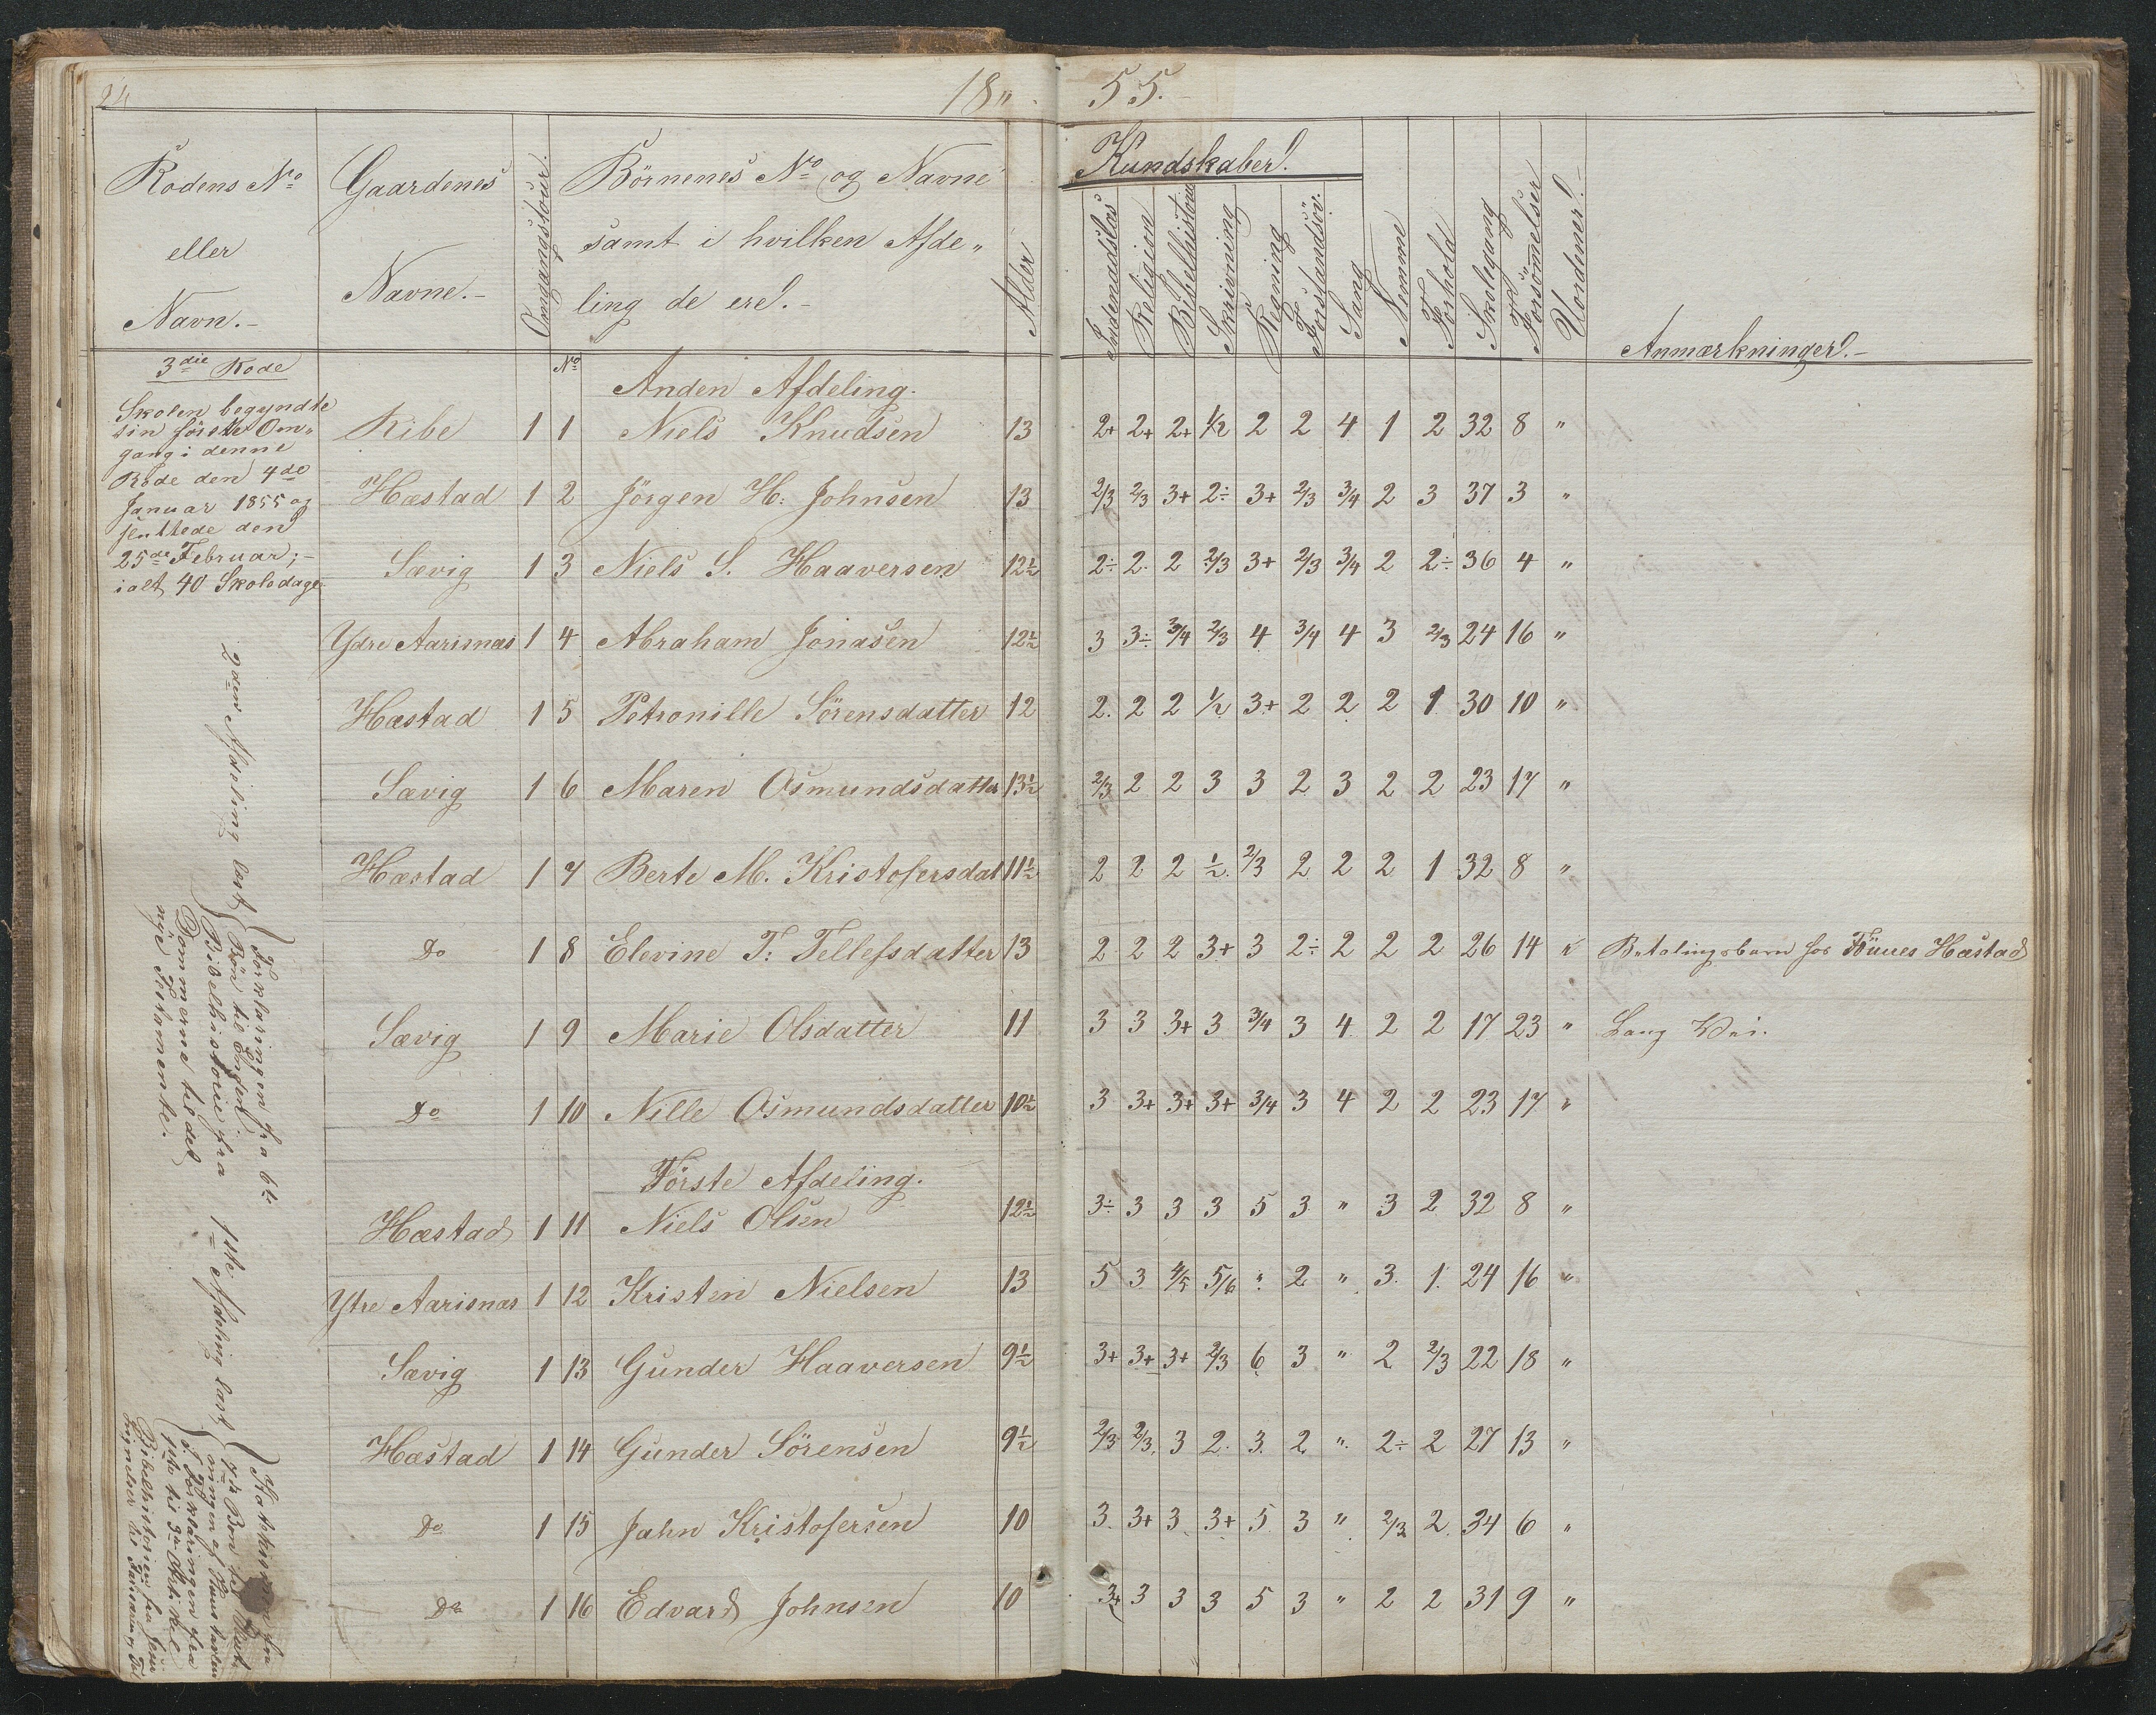 24 18„ 55.
Rodens No Gaardenes Omgangstour. Börnenes No og Navne Alder Kundskaber.
eller Navne.- samt i hvilken Afde„
Navn.- ling de ere.-
Indenadslæs Religion Bibelhistorie Skrivning Regning Forstandsöv. Sang Nemme Forhold Skolegang Forsömmelser Vordener.- Anmærkninger.-
3die Rode No Anden Afdeling.
Skolen begyndte
sin förste Om„
gang i denne
Rode den 4de
Januar 1855 og
sluttede den
25de Februar;-
ialt 40 Skoledage
Ribe 1 1 Niels Knudsen 13 2+ 2+ 2+ 1/2 2 2 4 1 2 32 8 „
Hæstad 1 2 Jörgen H. Johnsen 13 2/3 2/3 3+ 2÷ 3+ 2/3 3/4 2 3 37 3 „
Sævig 1 3 Niels S. Haaversen 12½ 2÷ 2 2 2/3 3+ 2/3 3/4 2 2÷ 36 4 „
Ydre Aarisnæs 1 4 Abraham Jonasen 12½ 3 3÷ 3/4 2/3 4 3/4 4 3 2/3 24 16 „
Hæstad 1 5 Petronille Sörensdatter 12 2 2 2 1/2 3+ 2 2 2 1 30 10 „
Sævig 1 6 Maren Osmundsdatter 13½ 2/3 2 2 3 3 2 3 2 2 23 17 „
Hæstad 1 7 Berte M. Kristofersdat 11½ 2 2 2 1/2 2/3 2 2 2 1 32 8 „
Do 1 8 Elevine T. Tellefsdatter 13 2 2 2 3+ 3 2÷ 2 2 2 26 14 „ Betalingsbarn hos Hæstad
Sævig 1 9 Marie Olsdatter 11 3 3 3+ 3 3/4 3 4 2 2 17 23 „ Lang Vei.
Do 1 10 Nille Osmundsdatter 10½ 3 3+ 3+ 3+ 3/4 3 4 2 2 23 17 „
Förste Afdeling.
Hæstad 1 11 Niels Olsen 12½ 3÷ 3 3 3 5 3 „ 3 2 32 8 „
Ytre Aarisnæs 1 12 Kristen Nielsen 13 5 3 4/5 5/6 „ 2 „ 3 1 24 16 „
Sævig 1 13 Gunder Haaversen 9½ 3+ 3+ 3+ 2/3 6 3 „ 2 2/3 22 18 „
Hæstad 1 14 Gunder Sörensen 9½ 2/3 2/3 3 2 3 2 „ 2÷ 2 27 13 „
Do 1 15 Jahn Kristofersen 10 3 3+ 3 3+ 5 3 „ 2/3 2 34 6 „
Do 1 16 Edvard Johnsen 10 3+ 3 3 3 5 3 „ 2 2 31 9 „
2den Afdeling læst
Forklaringen fra 6te
Bön til Enden.
Bibelhistorie fra
Dommerne til det
nye Testamente.
1ste Afdeling læst
Forklaringen fra
1ste til 3die Artikel
Bibelhistorien fra Jesu